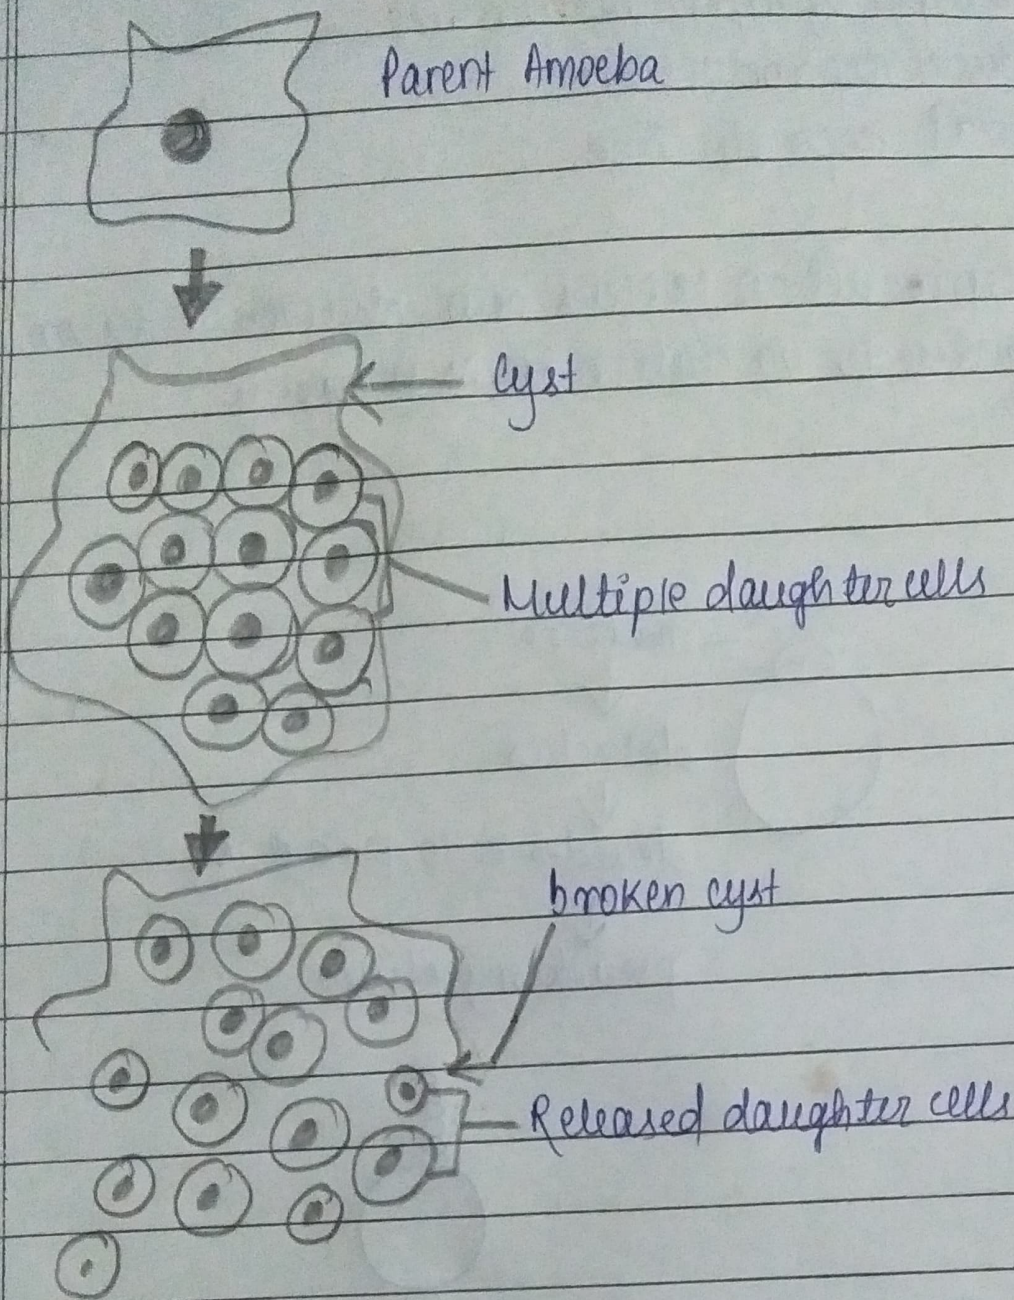 Parent Amoeba
Cyst
Multiple daughter cells
broken cyst
Released daughter cells